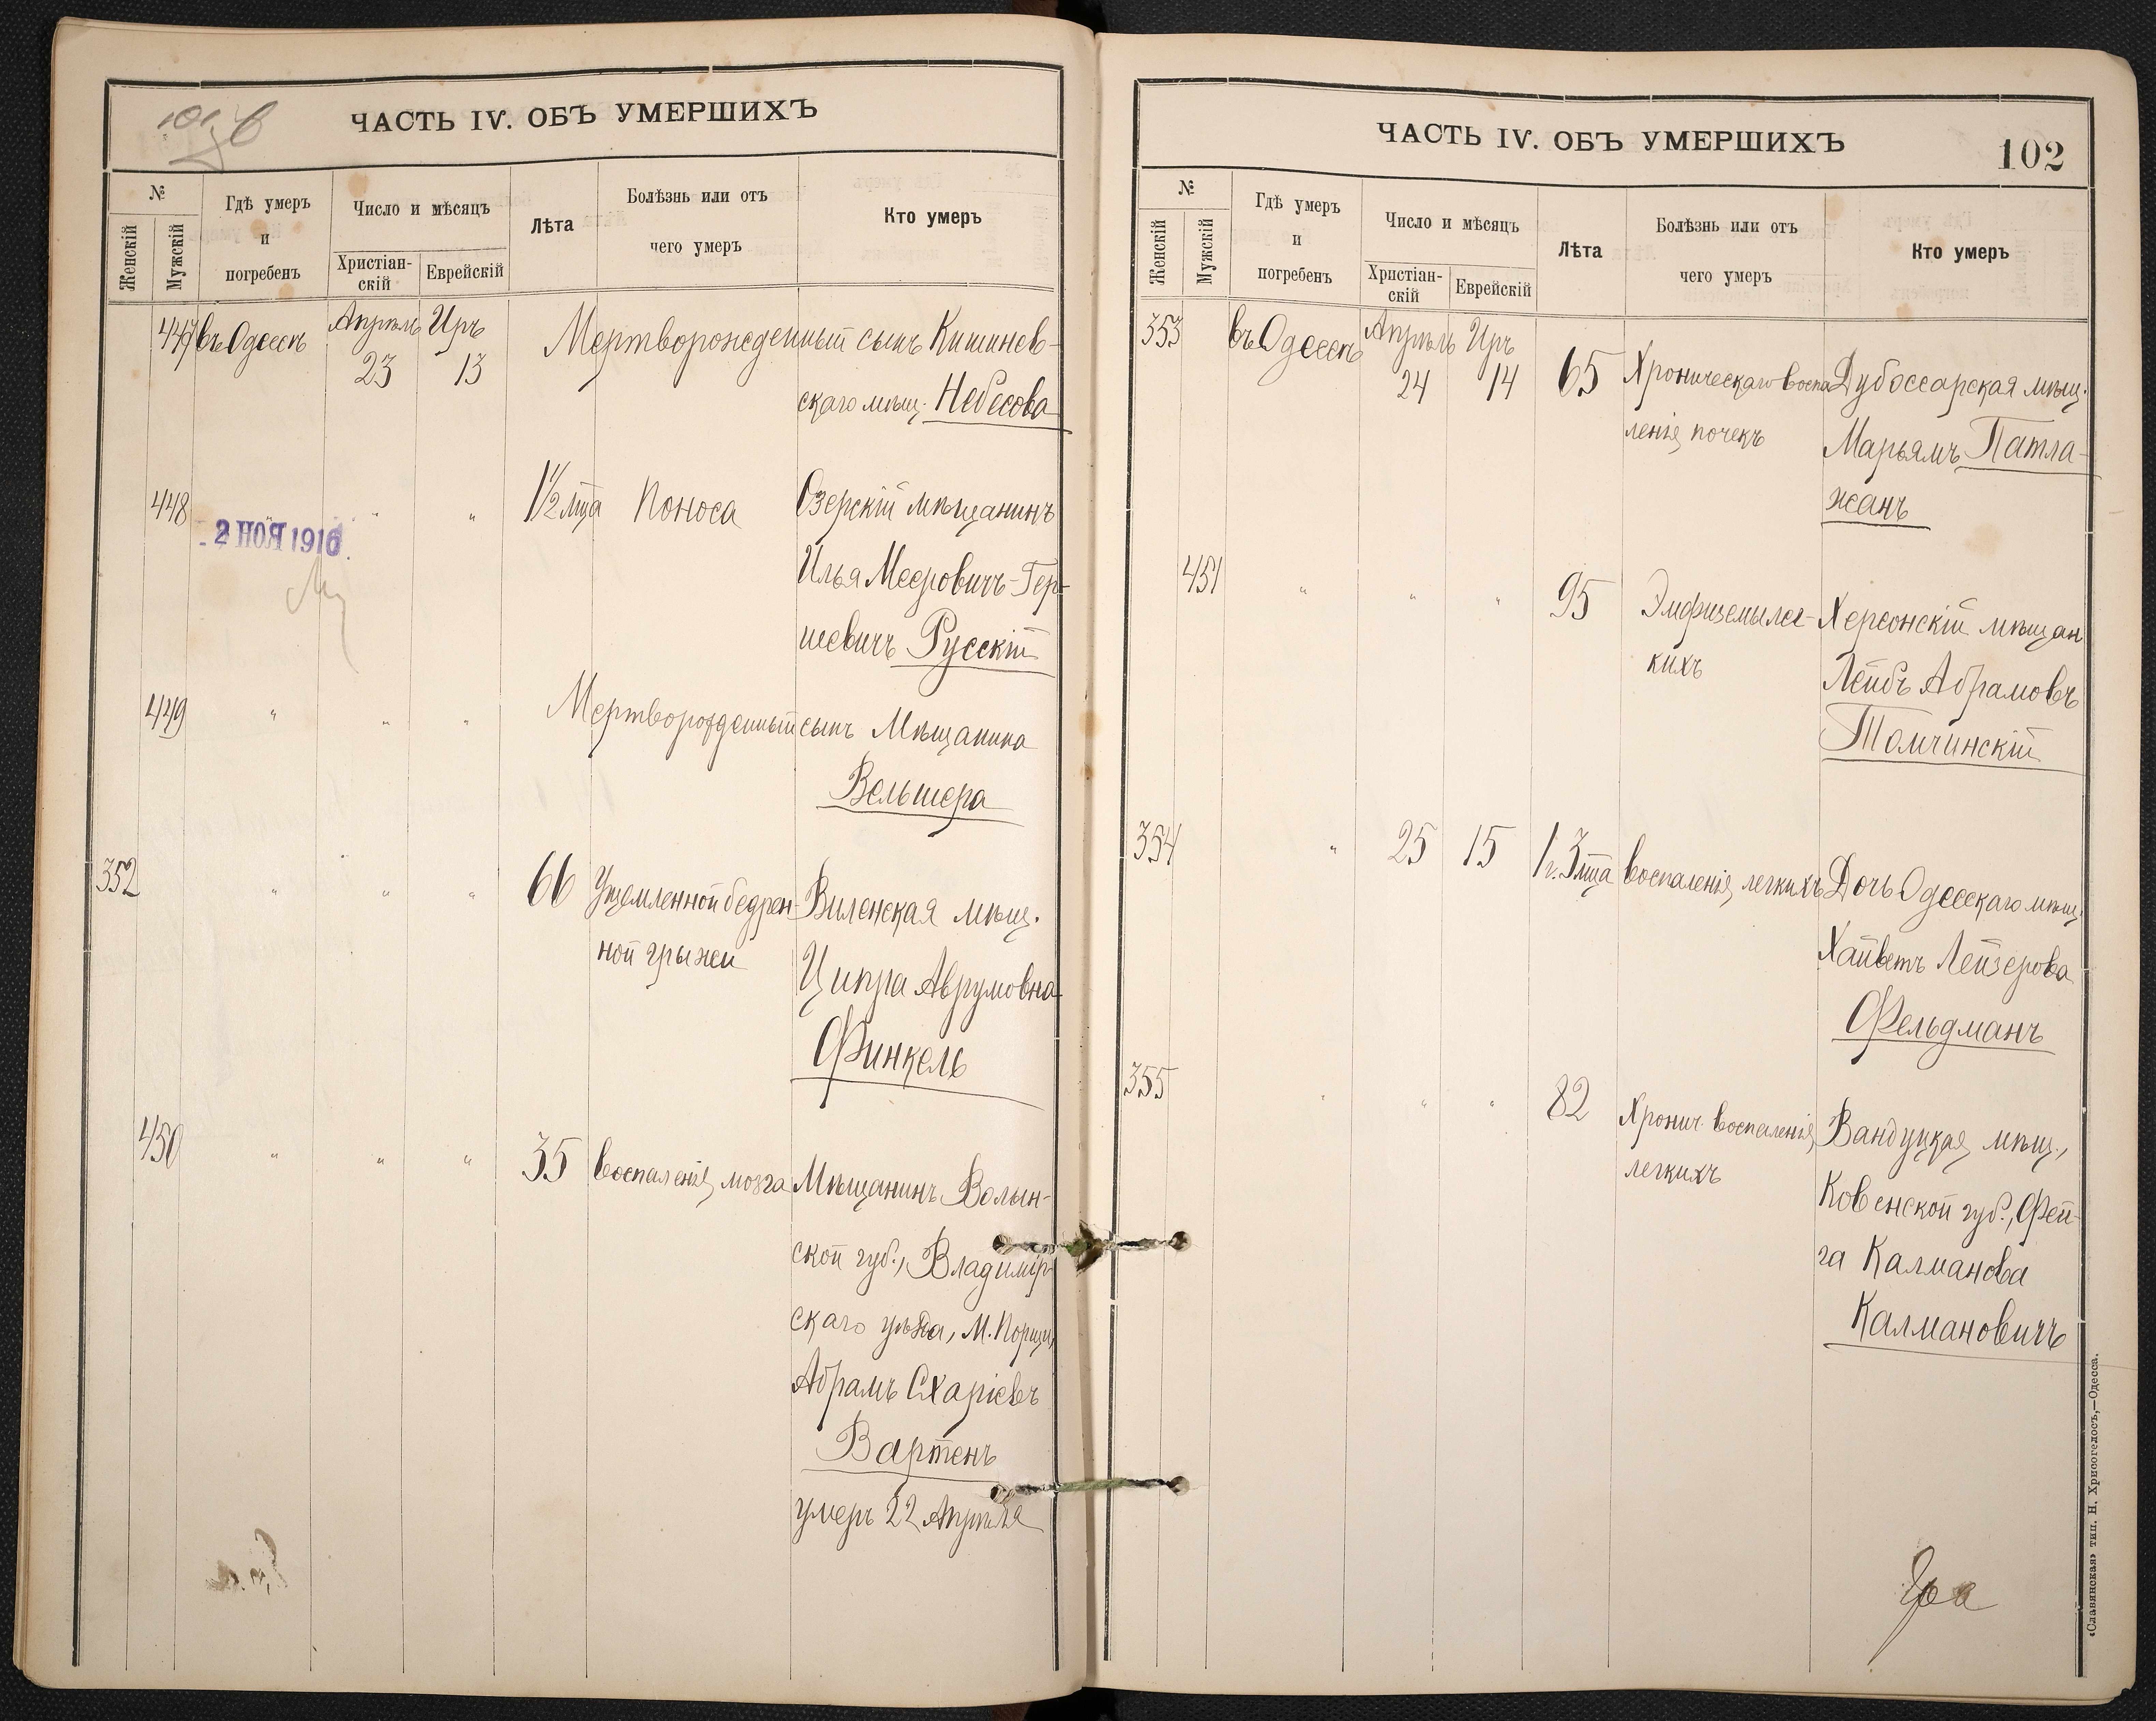 101 об
ЧАСТЬ IV. ОБЪ УМЕРШИХЪ
№
Женскій
Мужскій
Гдѣ умеръ
и
погребенъ
Число и мѣсяцъ
Христіан-
скій
Еврейскій
Лѣта
Болѣзнь или отъ
чего умеръ
Кто умеръ
447 въ Одессѣ Апрѣль Иръ Мертворожденный сынъ Кишинев-
23 13 скаго мѣщ. Небесова
448 " " 1½ мца Поноса Озерскій мѣщанинъ
2 НОЯ 1916
Илья Меерович-Гер-
шевичъ Русскій
449 " " " Мертворожденный сынъ Мѣщанина
Вельшера
352 " " " 66 Ущемленной бедрен- Виленская мѣщ.
ной грыжи Ципра Аврумовна
Финкель
450 " " " 35 воспаленія мозга Мѣщанинъ Волын-
ской губ., Владимір-
скаго уѣзда, М.
Абрамъ Схаріевъ
Вартенъ
умеръ 22 Апрѣля
ЧАСТЬ IV. ОБЪ УМЕРШИХЪ
102
№
Женскій
Мужскій
Гдѣ умеръ
и
погребенъ
Число и мѣсяцъ
Христіан-
скій
Еврейскій
Лѣта
Болѣзнь или отъ
чего умеръ
Кто умеръ
353 въ Одессѣ Апрѣль Иръ
24 14 65 Хроническаго воспа- Дубоссарская мѣщ.
ленія почекъ Марьямъ Патла-
жанъ
451 " " " 95 Эмфиземы лег- Херсонскій мѣщан
кихъ Лейбъ Абрамовъ
Томчинскій
354 " 25 15 1 г. 3 мца воспаленія легкихъ Дочь Одесскаго мѣщ.
Хайветъ Лейзерова
Фельдманъ
355 " " " 82 Хронич. воспаленія Вандуцкая мѣщ.,
легкихъ Ковенской губ., Фей-
га Калманова
Калмановичъ
«Славянская» тип. Н. Хрисогелосъ,—Одесса.